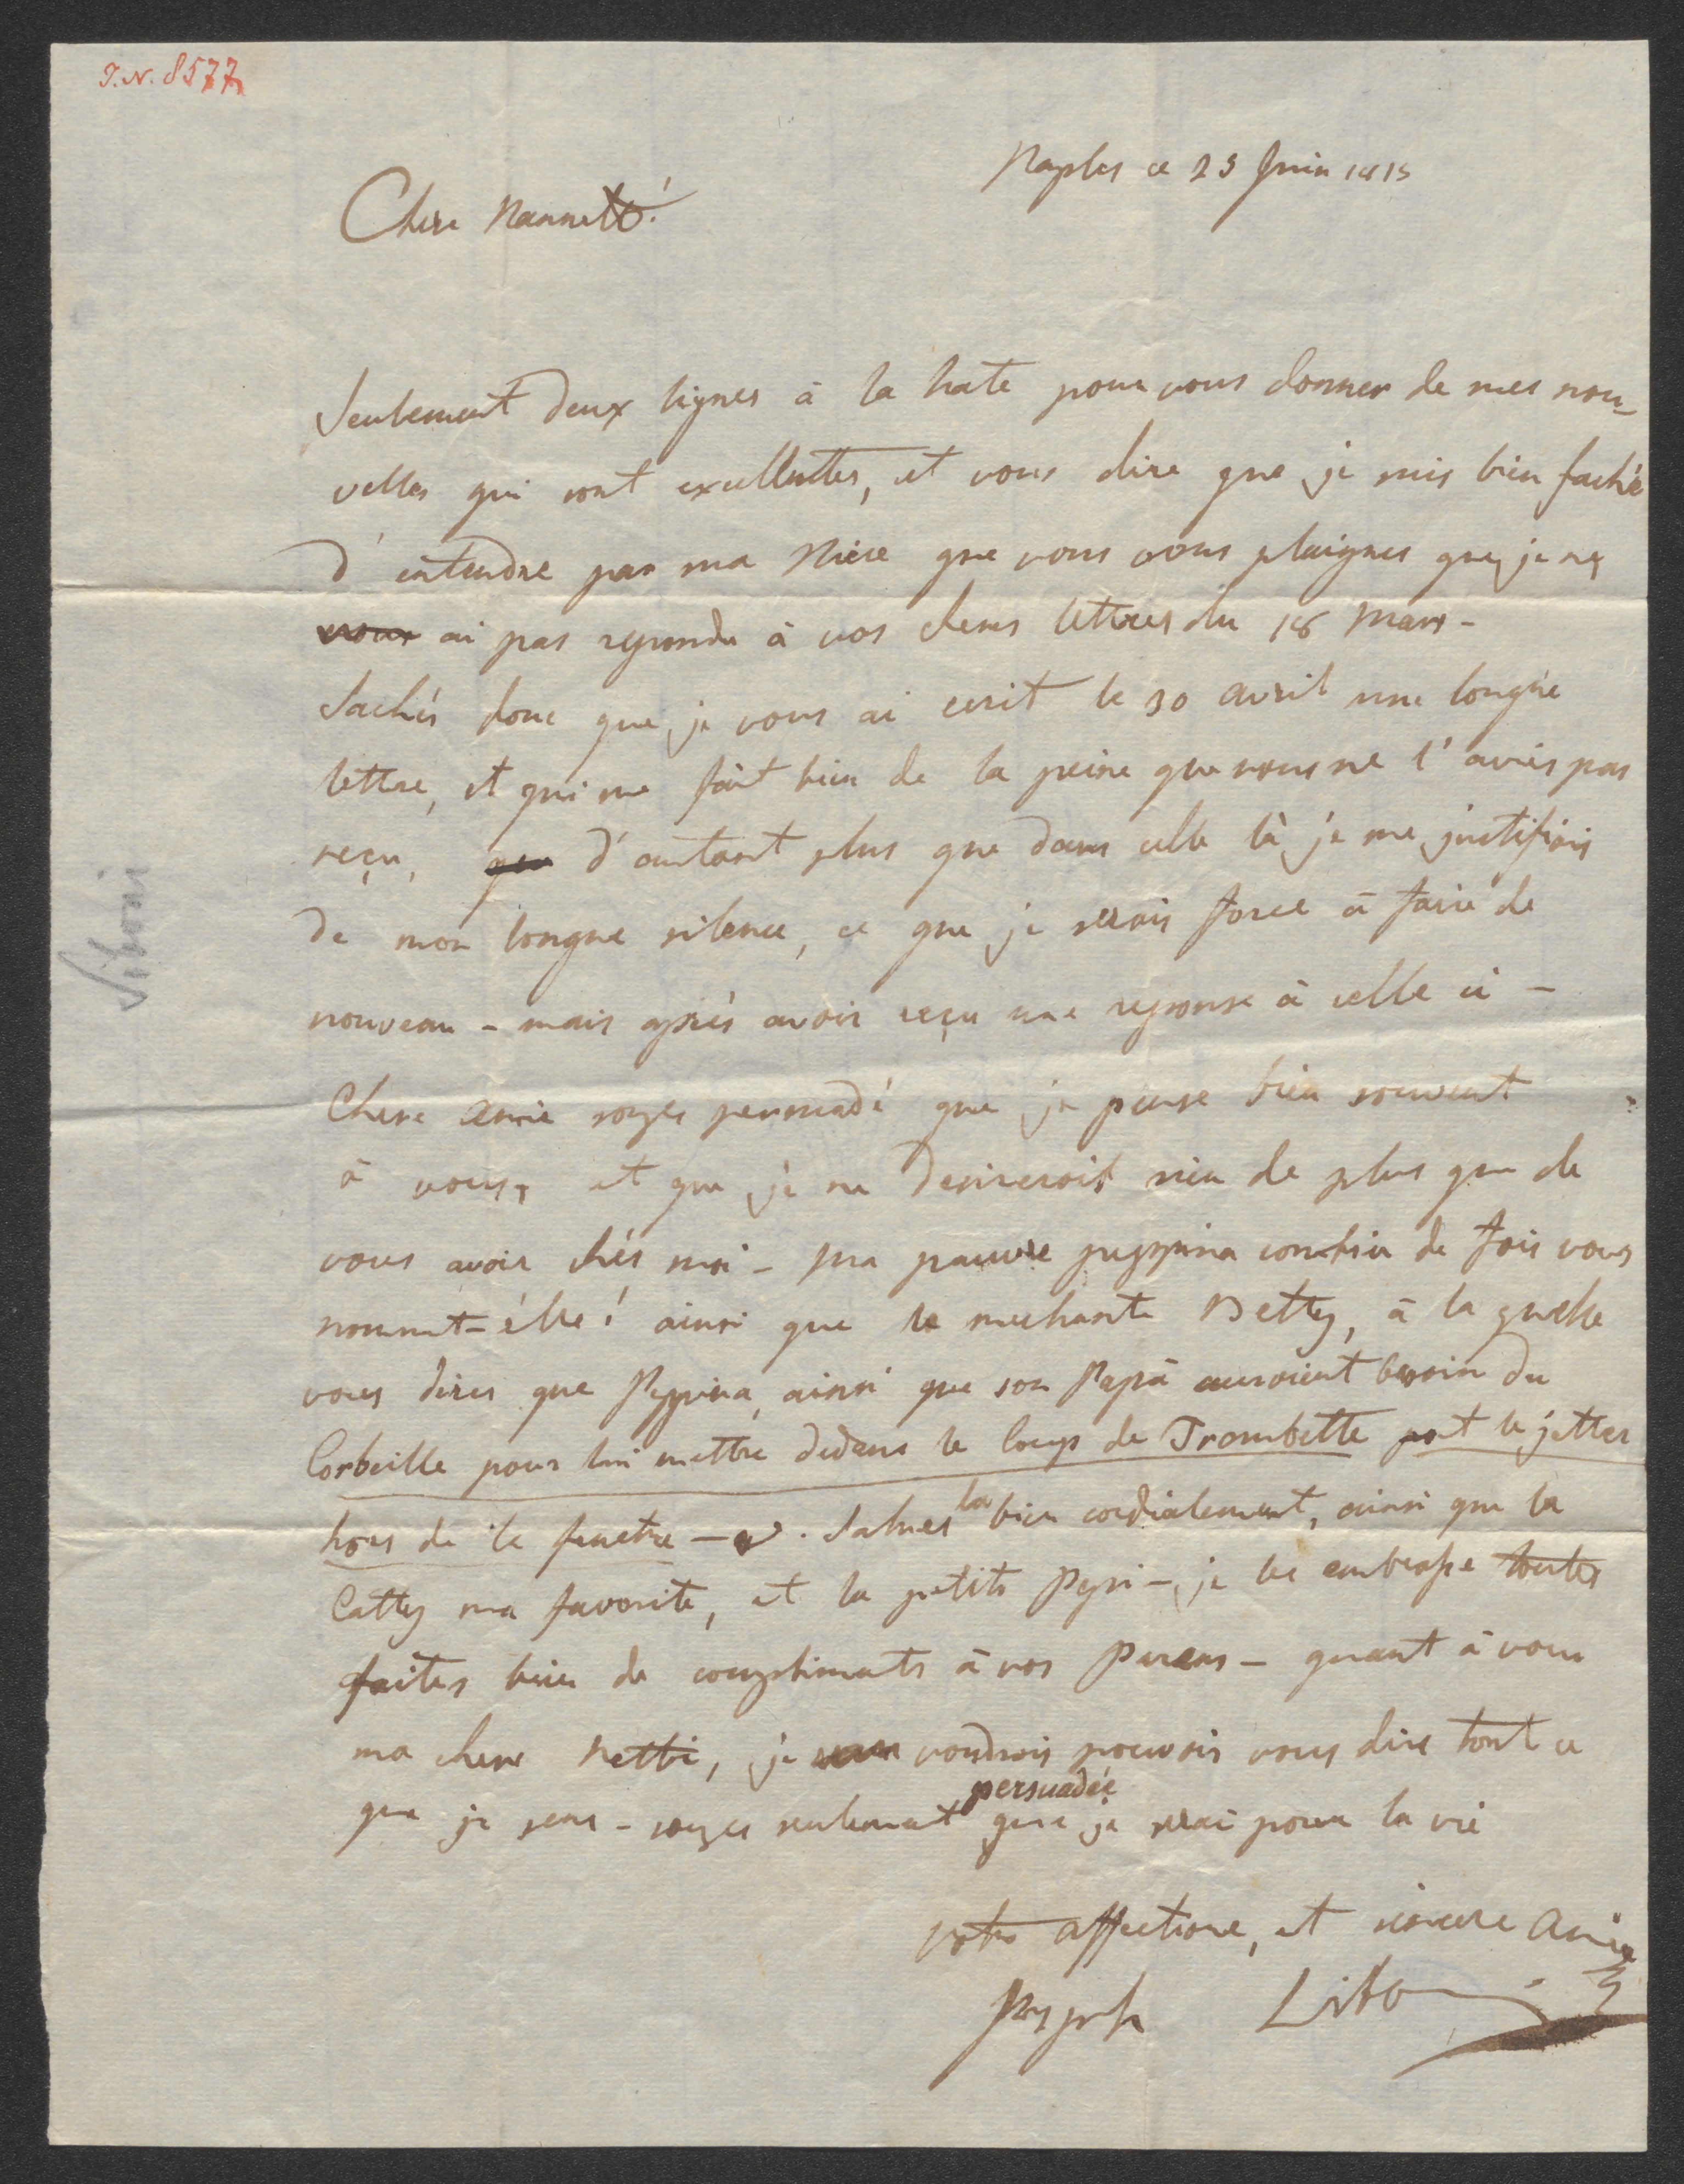 I.N. 8577
Naples ce 23 Juin 1815
Chere Nannette!
Seulement deux lignes à la hate pour vous donner de mes nou-
velles qui sont excellentes, et vous dire que je suis bien faché
d'entendre par ma Niéce que vous vous plaignes que je ne
vous ai pas repondu à vos cheres lettres du 18 Mars -
Sachés donc que je vous ai ecrit le 30 avril une longue
lettre, et qui me fait bien de la peine que vous ne l'avies pas
reçu, que d'autant plus que dans celle là je me justifiois
de mon longue silence, ce que je serois force à faire de
nouveau - mais après avoir reçu une reponse à celle ci -
Chere Amie soyes persuadé que je pense bien souvent
à vous, et que je ne desirerois rien de plus que de
vous avoir chés moi - ma pauvre peppina combien de fois vous
nommt-élle! ainsi que la mechante Betty, à la quelle
vous dires que Peppina, ainsi que son Papà auroient besoin du
Corbeille pour lui mettre dedans le loup de Trombette et le jetter
hors de la fenetre - . Salues la bien cordialement, ainsi que la
Catty ma favorite, et la petite Pepi - je les embrasse toutes
faites bien de compliments à vos Parens - quant à vous
ma chere Netti, je voudrois pouvoir vous dire tout ce
que je sens - soyes seulement persuadée que je serai pour la vie
votre affectione, et sincere Ami
Joseph Liboni
Liboni